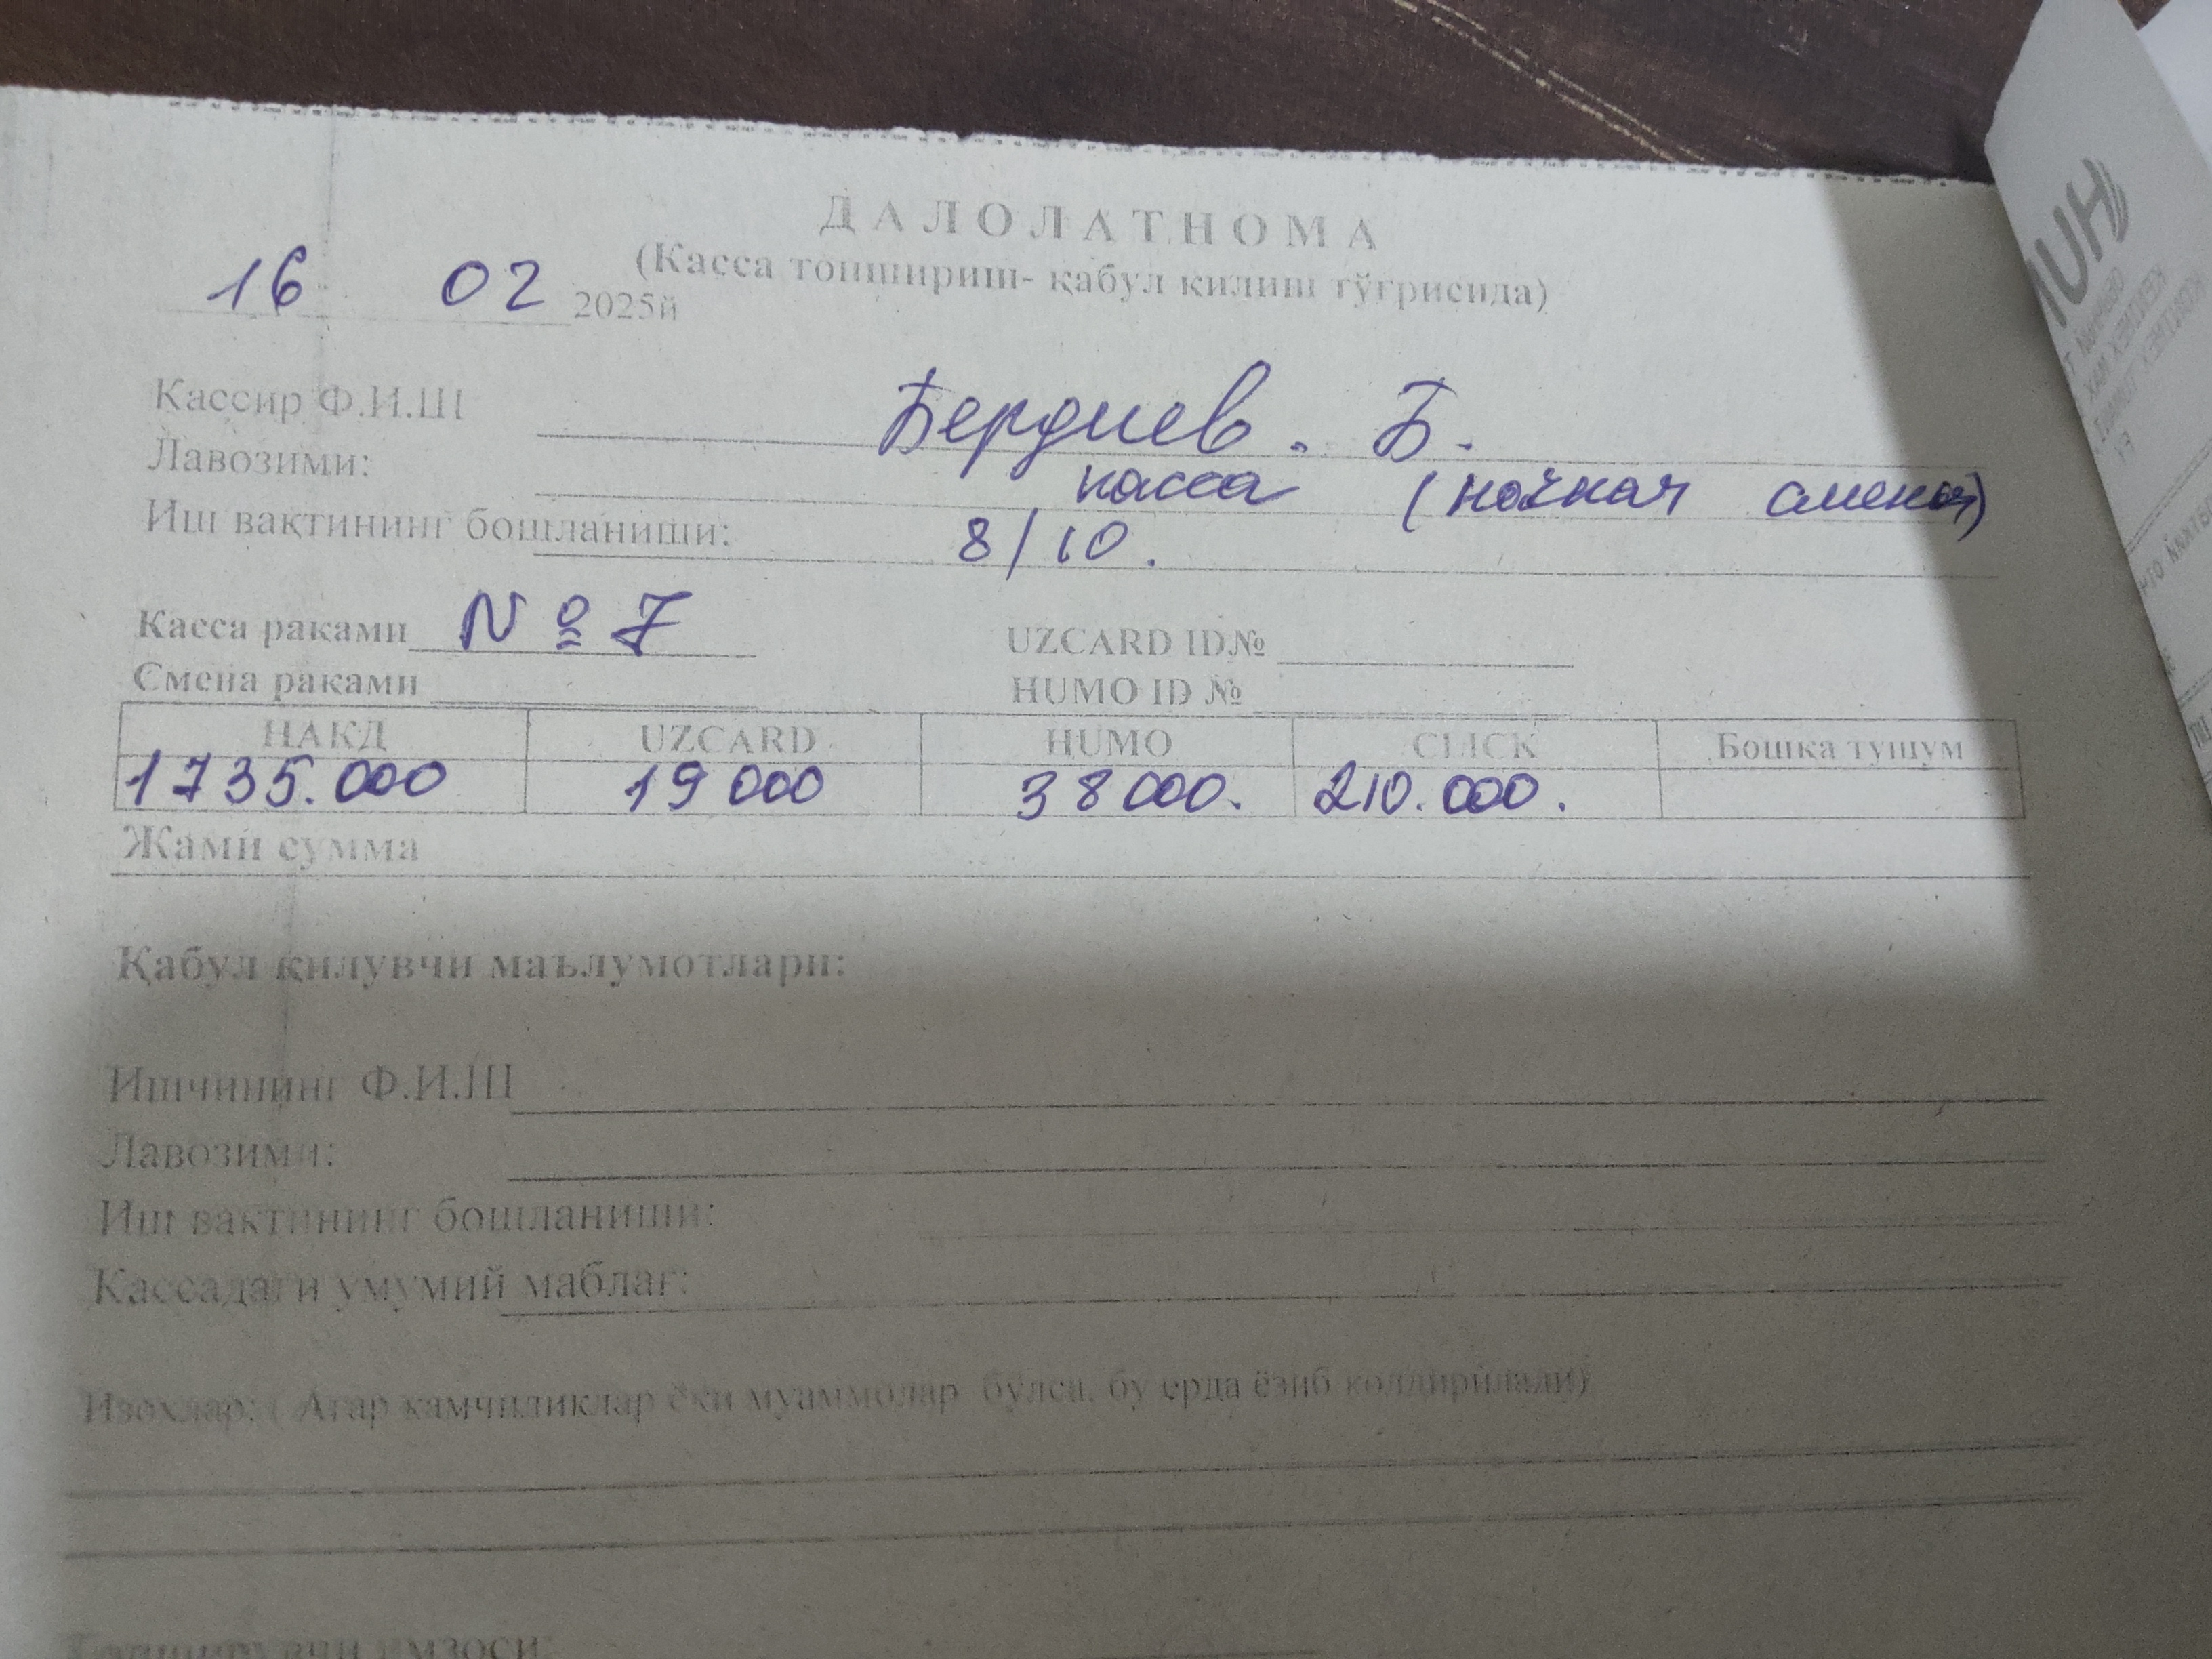 ДАЛОЛАТНОМА
(Касса топшириш- қабул килиш тўғрисида)
16 02 2025й
Кассир Ф.И.Ш Бердиев. Б.
Лавозими: касса (ночная смена)
Иш вақтининг бошланиши: 8/10.
Касса раками № 7 UZCARD ID№
Смена раками HUMO ID №
НАКД UZCARD HUMO CLICK Бошка тушум
1735.000 19000 38000. 210.000.
Жами сумма
Қабул қилувчи маълумотлари:
Ишчининг Ф.И.Ш
Лавозими:
Иш вактининг бошланиши:
Кассадаги умумий маблағ:
Изохлар: ( Агар камчиликлар ёки муаммолар бўлса, бу ерда ёзиб колдирилади)
Топширувчи имзоси:
HUM